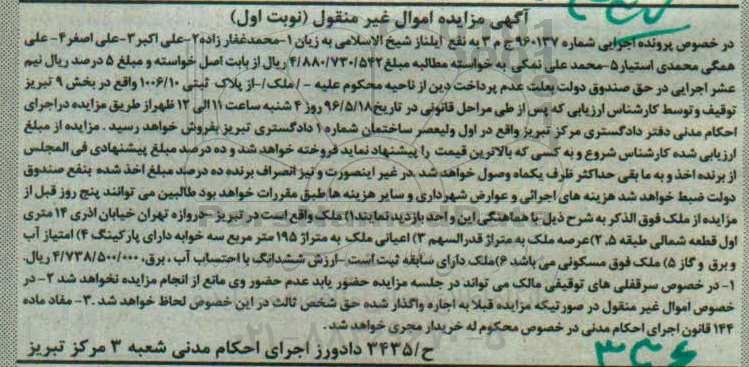 آگهی مزایده اموال غیر منقول (نوبت اول)
در خصوص پرونده اجرایی شماره ۹۶۰۱۳۷ ج م ۳ به نفع ایلناز شیخ الاسلامی به زیان ۱-محمدغفار زاده۲-علی اکبر۳-علی اصغر۴-علی
همگی محمدی استیار۵-محمد علی نمکی به خواسته مطالبه مبلغ ۴/۸۸۰/۷۳۰/۵۴۲ ریال از بابت اصل خواسته و مبلغ ۵ درصد ریال نیم
عشر اجرایی در حق صندوق دولت بعلت عدم پرداخت دین از ناحیه محکوم علیه - / ملک/-از پلاک ثبتی ۱۰۰۶/۱۰ واقع در بخش ۹ تبریز
توقیف وتوسط کارشناس ارزیابی که پس از طی مراحل قانونی در تاریخ ۹۶/۵/۱۸ روز ۴ شنبه ساعت ۱۱ الی ۱۲ ظهراز طریق مزایده دراجرای
احکام مدنی دفتر دادگستری مرکز تبریز واقع در اول ولیعصر ساختمان شماره ۱ دادگستری تبریز بفروش خواهد رسید . مزایده از مبلغ
ارزیابی شده کارشناس شروع و به کسی که بالاترین قیمت را پیشنهاد نماید فروخته خواهد شد و ده درصد مبلغ پیشنهادی فی المجلس
از برنده اخذ و به ما بقی حداکثر ظرف یکماه وصول خواهد شد .در غیر اینصورت و نیز انصراف برنده ده درصد مبلغ اخذ شده بنفع صندوق
دولت ضبط خواهد شد هزینه های اجرائی و عوارض شهرداری و سایر هزینه ها طبق مقررات خواهد بود طالبین می توانند پنج روز قبل از
مزایده از ملک فوق الذکر به شرح ذیل با هماهنگی این واحد بازدید نمایند۱) ملک واقع است در تبریز -دروازه تهران خیابان اذری ۱۴ متری
اول قطعه شمالی طبقه ۵. ۲)عرصه ملک به متراژ قدرالسهم ۳) اعیانی ملک به متراژ ۱۹۵ متر مربع سه خوابه دارای پارکینگ ۴) امتیاز آب
و برق و گاز ۵) ملک فوق مسکونی می باشد ۶)ملک دارای سابقه ثبت است -ارزش ششدانگ با احتساب آب ، برق، ۴/۷۳۸/۵۰۰/۰۰۰ ریال.
۱- در خصوص سرقفلی های توقیفی مالک می تواند در جلسه مزایده حضور یابد عدم حضور وی مانع از انجام مزایده نخواهد شد ۲- در
خصوص اموال غیر منقول در صورتیکه مزایده قبلا به اجاره واگذار شده حق شخص ثالث در این خصوص لحاظ خواهد شد .۳- مفاد ماده
۱۴۴ قانون اجرای احکام مدنی در خصوص محکوم له خریدار مجری خواهد شد.
ح/۳۴۳۵ دادورز اجرای احکام مدنی شعبه ۳ مرکز تبریز